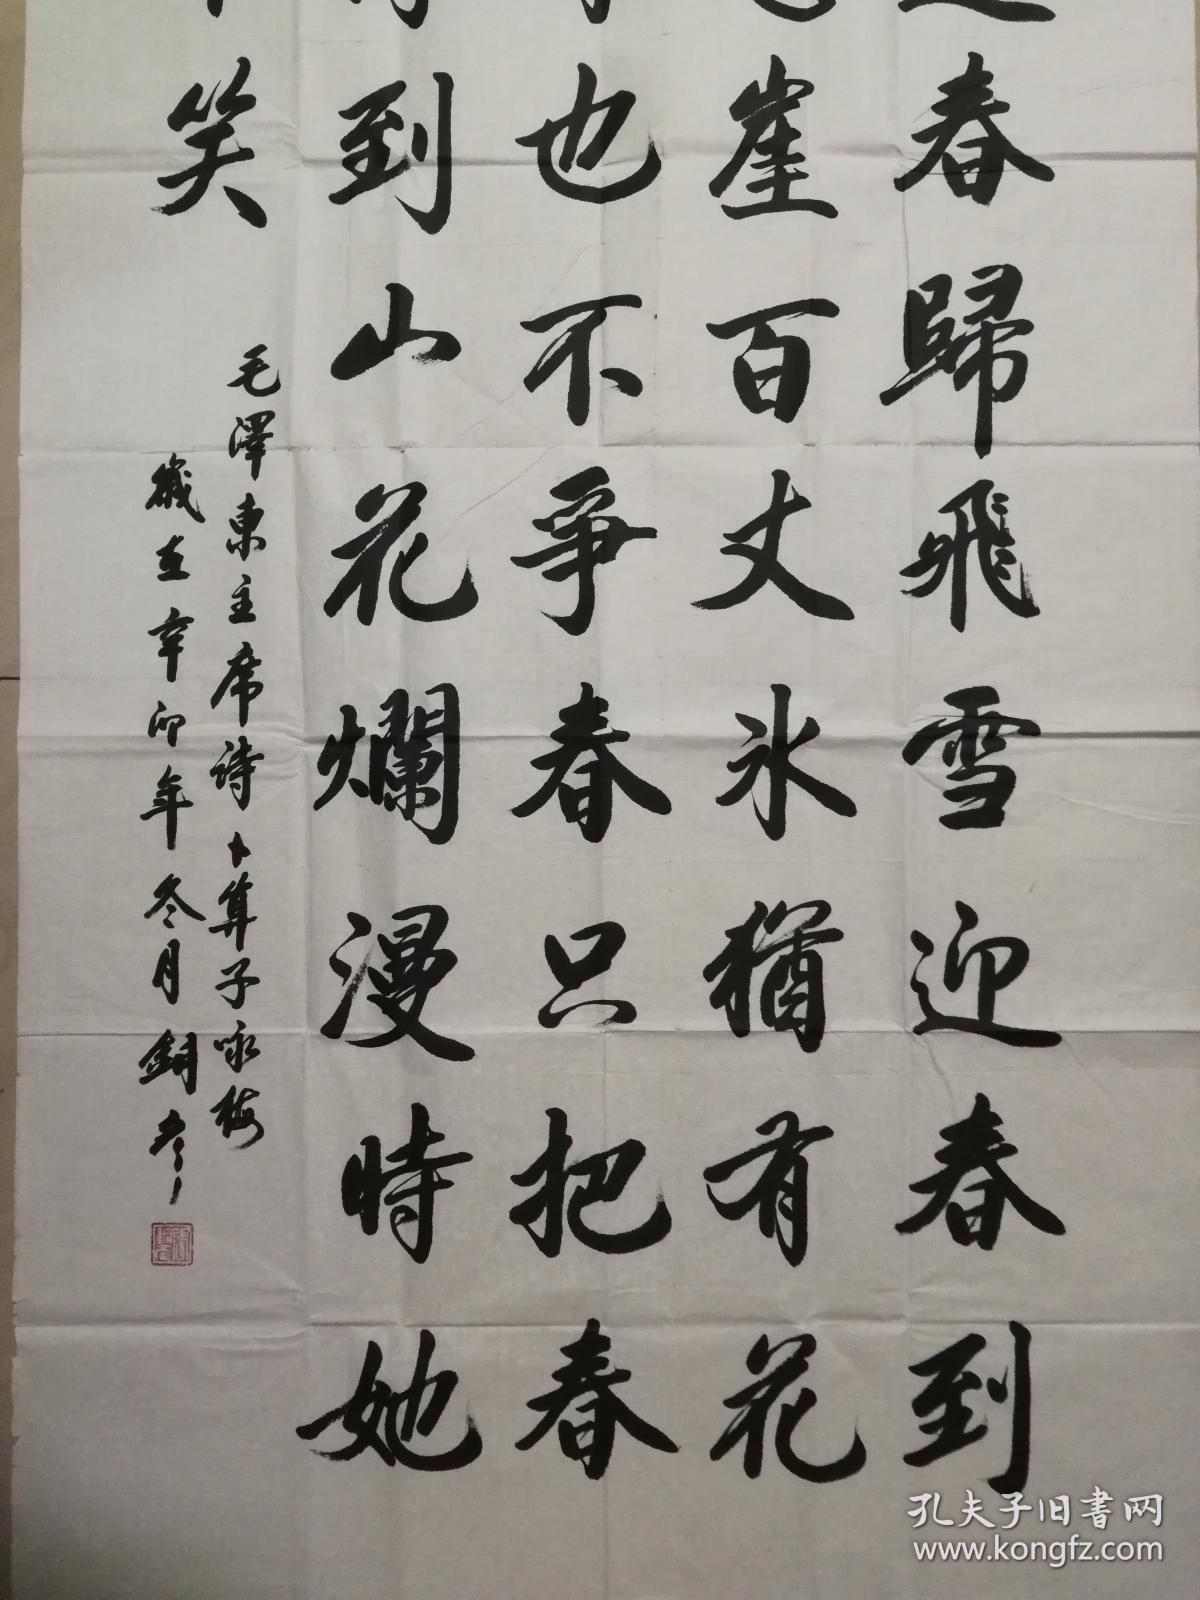 春歸飛雪迎春到
崖百丈冰猶有花
也不爭春只把春
到山花爛漫時她
笑
毛澤東主席詩卜算子咏梅
歲在辛卯年冬月銅
孔夫子旧书网
www.kongfz.com